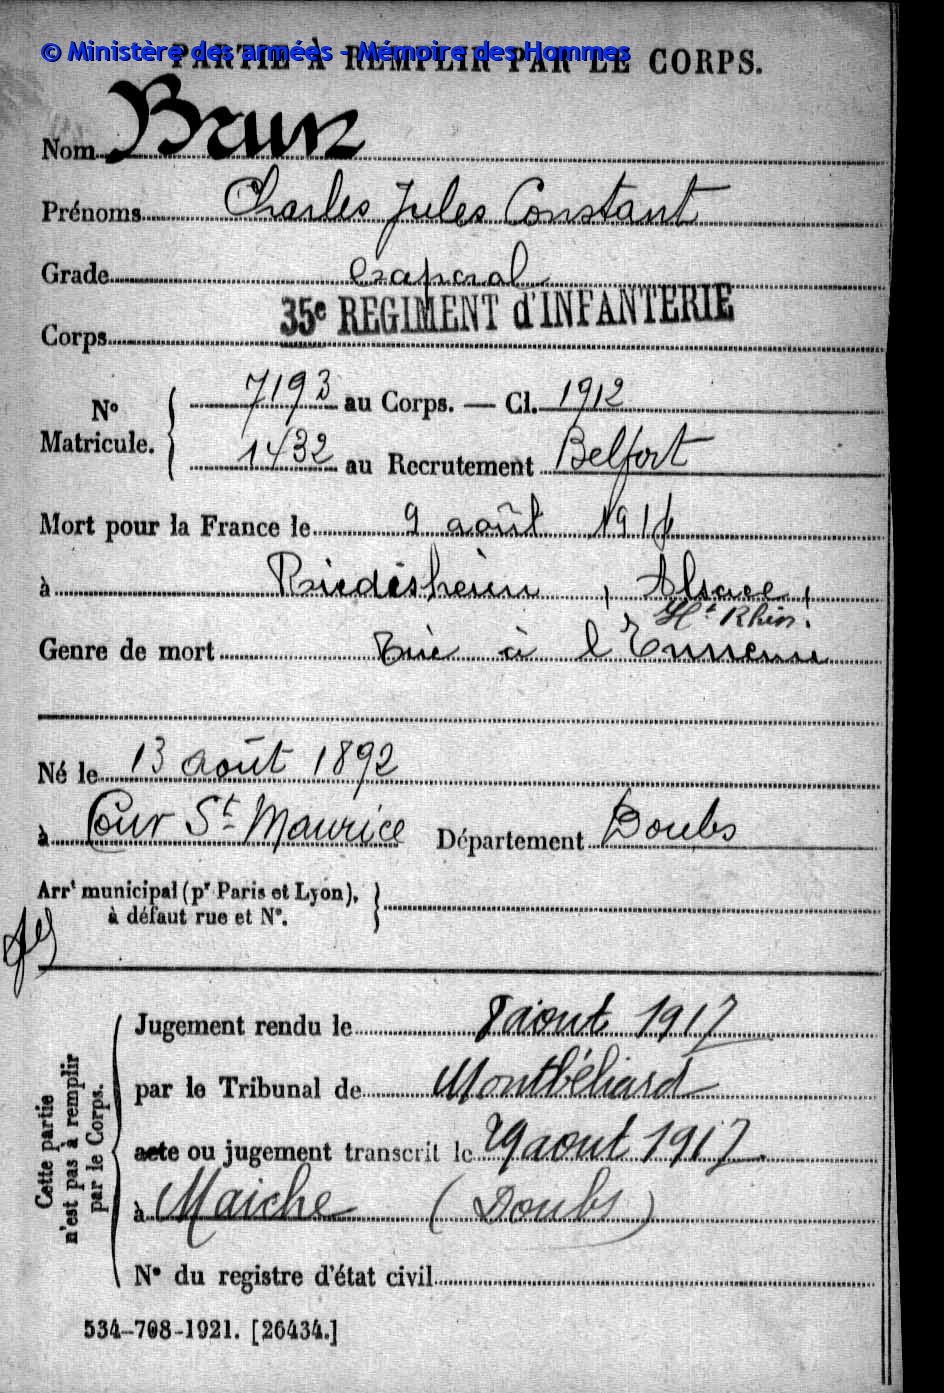 © Ministère des armées - Mémoire des Hommes
PARTIE À REMPLIR PAR LE CORPS.
Nom Brun
Prénoms Charles Jules Constant
Grade Caporal
Corps 35e REGIMENT d'INFANTERIE
N° Matricule. { 7193 au Corps. — Cl. 1912
1432 au Recrutement Belfort
Mort pour la France le 9 août 1914
à Riedisheim, Alsace,
Ht Rhin.
Genre de mort Tué à l'Ennemi
Né le 13 août 1892
à Cour St Maurice Département Doubs
Arrt municipal (pr Paris et Lyon),
à défaut rue et N°.
Cette partie n'est pas à remplir par le Corps.
Jugement rendu le aout 1917
par le Tribunal de Montbéliard
acte ou jugement transcrit le 29 aout 1917
à Maiche (Doubs)
N° du registre d'état civil
534-708-1921. [26434.]